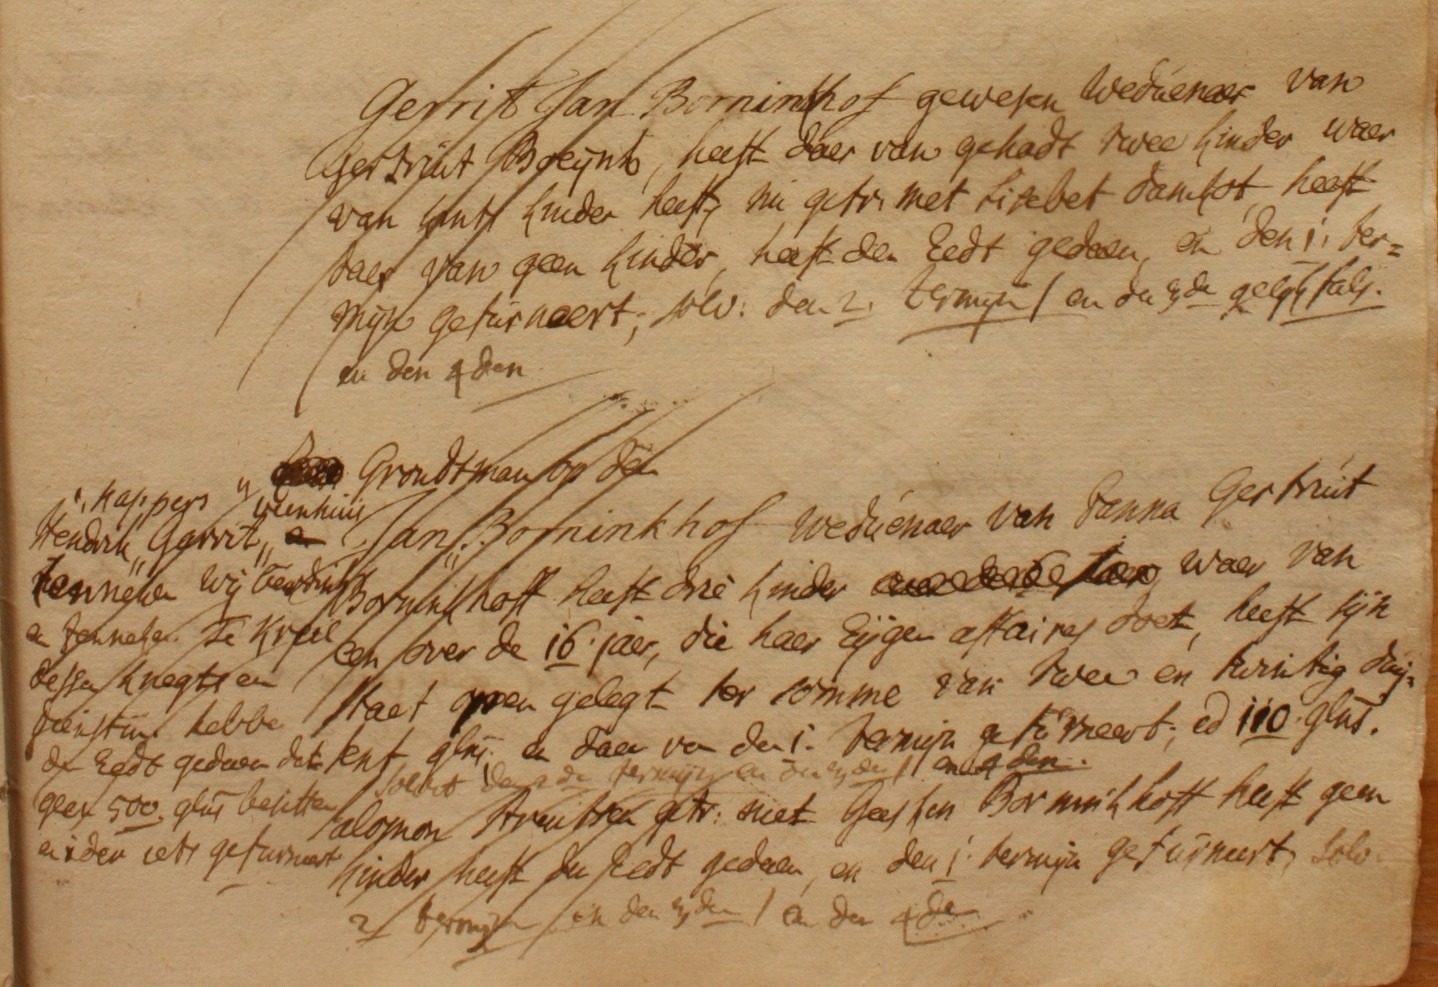 Gerrit Jan Borninkhof gewesen weduenaer van
Gertruit Breijnk, heeft daer van gehadt twee kinder waer
van kinder heeft, nu getr: met Lisebet damkot heeft
daer van geen kinder, heeft den Eedt gedaen, en den 1. ter=
mijn gefurneert; solv: den 2. termijn / en den 3de gelijkfals.
en den 4den
Grondtman op den
Jan Borninkhof weduenaer van Janna Gertruit
Borninkhoff heeft drie kinder waer van
een over de 16. jaer, die haer Eijgen affaires doet, heeft sijn
staet open gelegt ter somme van twee en twintig duij=
sent glns. en daer van den 1. termijn gefurneert; ad 110. glns.
solvit den 2de termijn en den 3den / en 4den.
Salomon Arentsen getr: met Geesken Borninkhoff heeft geen
kinder heeft den Eedt gedaen, en den 1. termijn gefurneert, solv.
2 termijn en den 3den / en den 4de
Kappers
Hendrik, Garrit, wenhuis
Jenneken Wij
en Jenneken te Kreil
dessen knegts en
hebbe
den Eedt gedaen dat
geen 500. glns besitten
en ider iets gefurneert